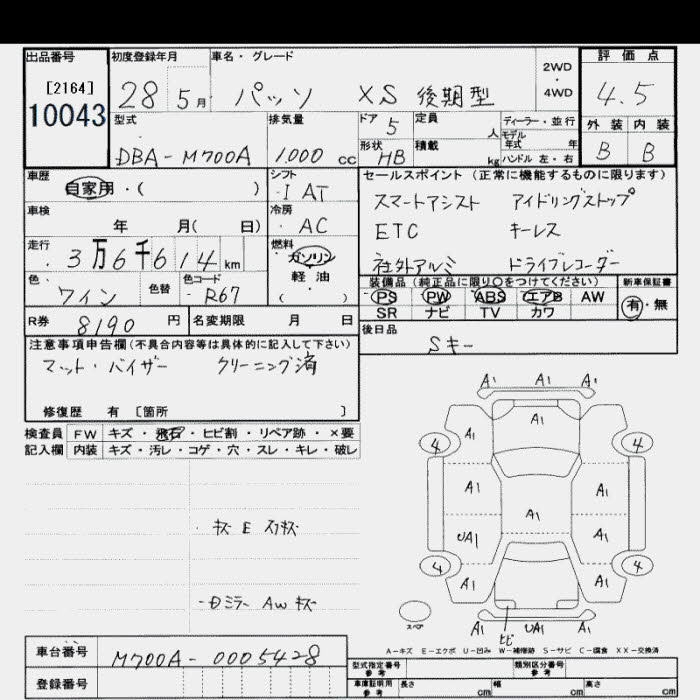 出品番号 初度登録年月 車名・グレード 2WD・4WD 評価点
[2164] 28 5月 パッソ XS 後期型 4.5
10043
型式 排気量 ドア 定員 ディーラー・並行 外装 内装
DBA-M700A 1,000 cc 5 人 モデル年式 年 B B
形状 積載 kg ハンドル 左・右
HB
車歴 シフト セールスポイント(正常に機能するものに限ります)
自家用・( ) I AT スマートアシスト アイドリングストップ
車検 冷房 ETC キーレス
年 月( 日) AC 社外アルミ ドライブレコーダー
走行 燃料
3万6千614km ガソリン・軽油
( )
色 色替 色コード 装備品(純正品に限り○をつけてください) 新車保証書
ワイン R67 PS PW ABS エアB AW 有・無
SR ナビ TV カワ
R券 8190円 名変期限 月 日 後日品
Sキー
注意事項申告欄(不具合内容等は具体的に記入して下さい)
マット・バイザー クリーニング済
修復歴 有 [箇所 ]
検査員 FW キズ・飛石・ヒビ割・リペア跡・×要
記入欄 内装 キズ・汚レ・コゲ・穴・スレ・キレ・破レ
・キズ E スリキズ
A1 A1 A1
A1 A1
4 4
A1 A1
A1
UA1 A1
4 4
A1 A1
スペア
A1 UA1 A1
ヒビ
A-キズ E-エクボ U-凹み W-補修跡 S-サビ C-腐食 XX-交換済
車台番号 M700A-0005428
登録番号
型式指定番号 参考 類別区分番号 参考
車庫証明用 参考 長さ cm 幅 cm 高さ cm